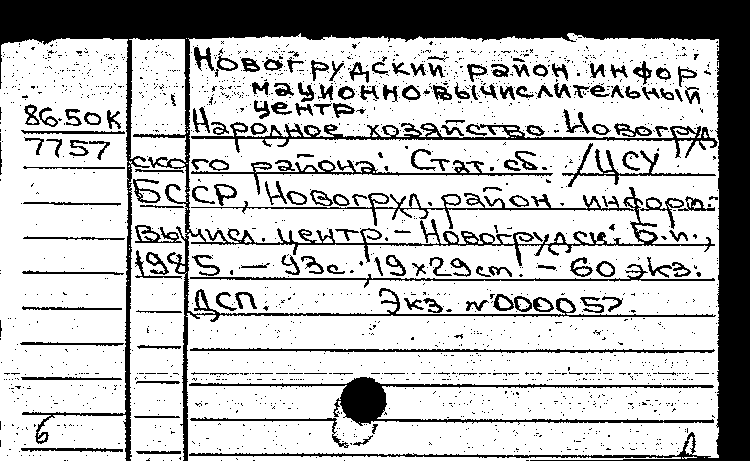 Новогрудский район. инфор-
мационно-вычислительный
центр.
86.50К
Народное хозяйство Новогруд
7757
ского района: Стат. сб. /ЦСУ
БССР, Новогруд. район. информ.-
вычисл. центр. – Новогрудск: Б.и.,
1985. – 93с.; 19×29 cm. – 60 экз.
ДСП. Экз. №000057.
6